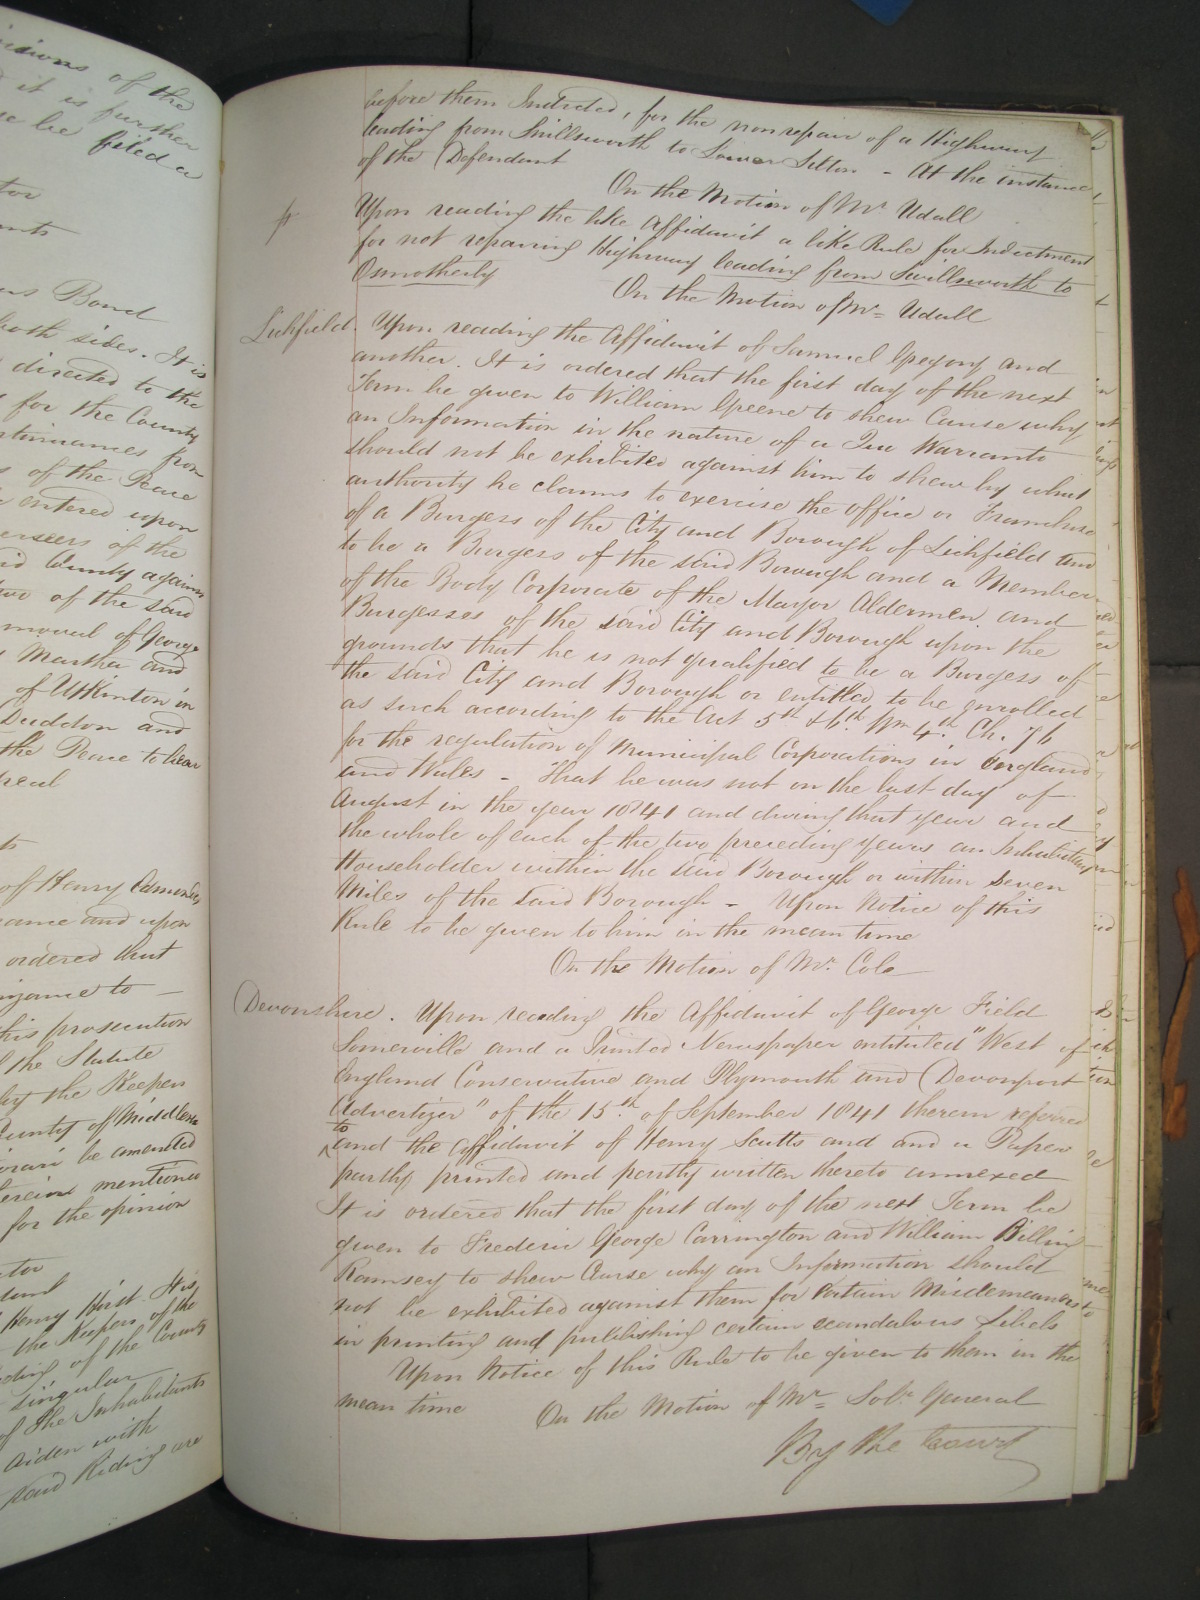 isions of the
it is further
se be filed a
tor
nts
Bond
both sides. It is
directed to the
for the County
ntinuances from
of the Peace
entered upon
erseers of the
id County against
two of the said
moval of George
Martha and
of Utkinton in
Duddon and
the Peace to hear
peal
to
of Henry Edmonds
ance and upon
ordered that
nizance to
his prosecution
the Statute
by the Keeper
County of Middlesex
orari be amended
erein mentioned
for the opinion
tor
dant
Henry Hoist. It is
the Keepers of the
ding of the County
singular
of the Inhabitants
aiden with
said Riding are
before them Indicted, for the non repair of a Highway
leading from Swillsworth to Lower Silton - At the instance
of the Defendant
On the Motion of Mr Udall
Upon reading the like Affidavit a like Rule for Indictment
for not repairing Highway leading from Swillsworth to
Osmotherly
On the Motion of Mr Udall
Lichfield. Upon reading the Affidavit of Samuel Gregory and
another. It is ordered that the first day of the next
Term be given to William Greene to shew Cause why
an Information in the nature of a Quo Warranto
should not be exhibited against him to shew by what
authority he claims to exercise the office or Franchise
of a Burgess of the City and Borough of Lichfield and
to be a Burgess of the said Borough and a Member
of the Body Corporate of the Mayor Aldermen and
Burgesses of the said City and Borough upon the
grounds that he is not qualified to be a Burgess of
the said City and Borough or entitled to be enrolled
as such according to the Act 5th & 6th Wm 4th Ch. 76
for the regulation of Municipal Corporations in England
and Wales - That he was not on the last day of
August in the year 1841 and during that year and
the whole of each of the two preceding years an Inhabitant
Householder within the said Borough or within seven
Miles of the said Borough - Upon Notice of this
Rule to be given to him in the mean time
On the Motion of Mr. Cole
Devonshire. Upon reading the Affidavit of George Field
Somerville and a Printed Newspaper entituled "West of
England Conservative and Plymouth and Devonport
Advertizer" of the 15th of September 1841 therein referred
to
and the Affidavit of Henry Scutts and and a Paper
partly printed and partly written thereto annexed
It is ordered that the first day of the next Term be
given to Frederic George Carrington and William Billing
Ramsey to shew Cause why an Information should
not be exhibited against them for Certain Misdemeanors
in printing and publishing certain scandalous Libels
Upon Notice of this Rule to be given to them in the
mean time
On the Motion of Mr Solr General
By the Court